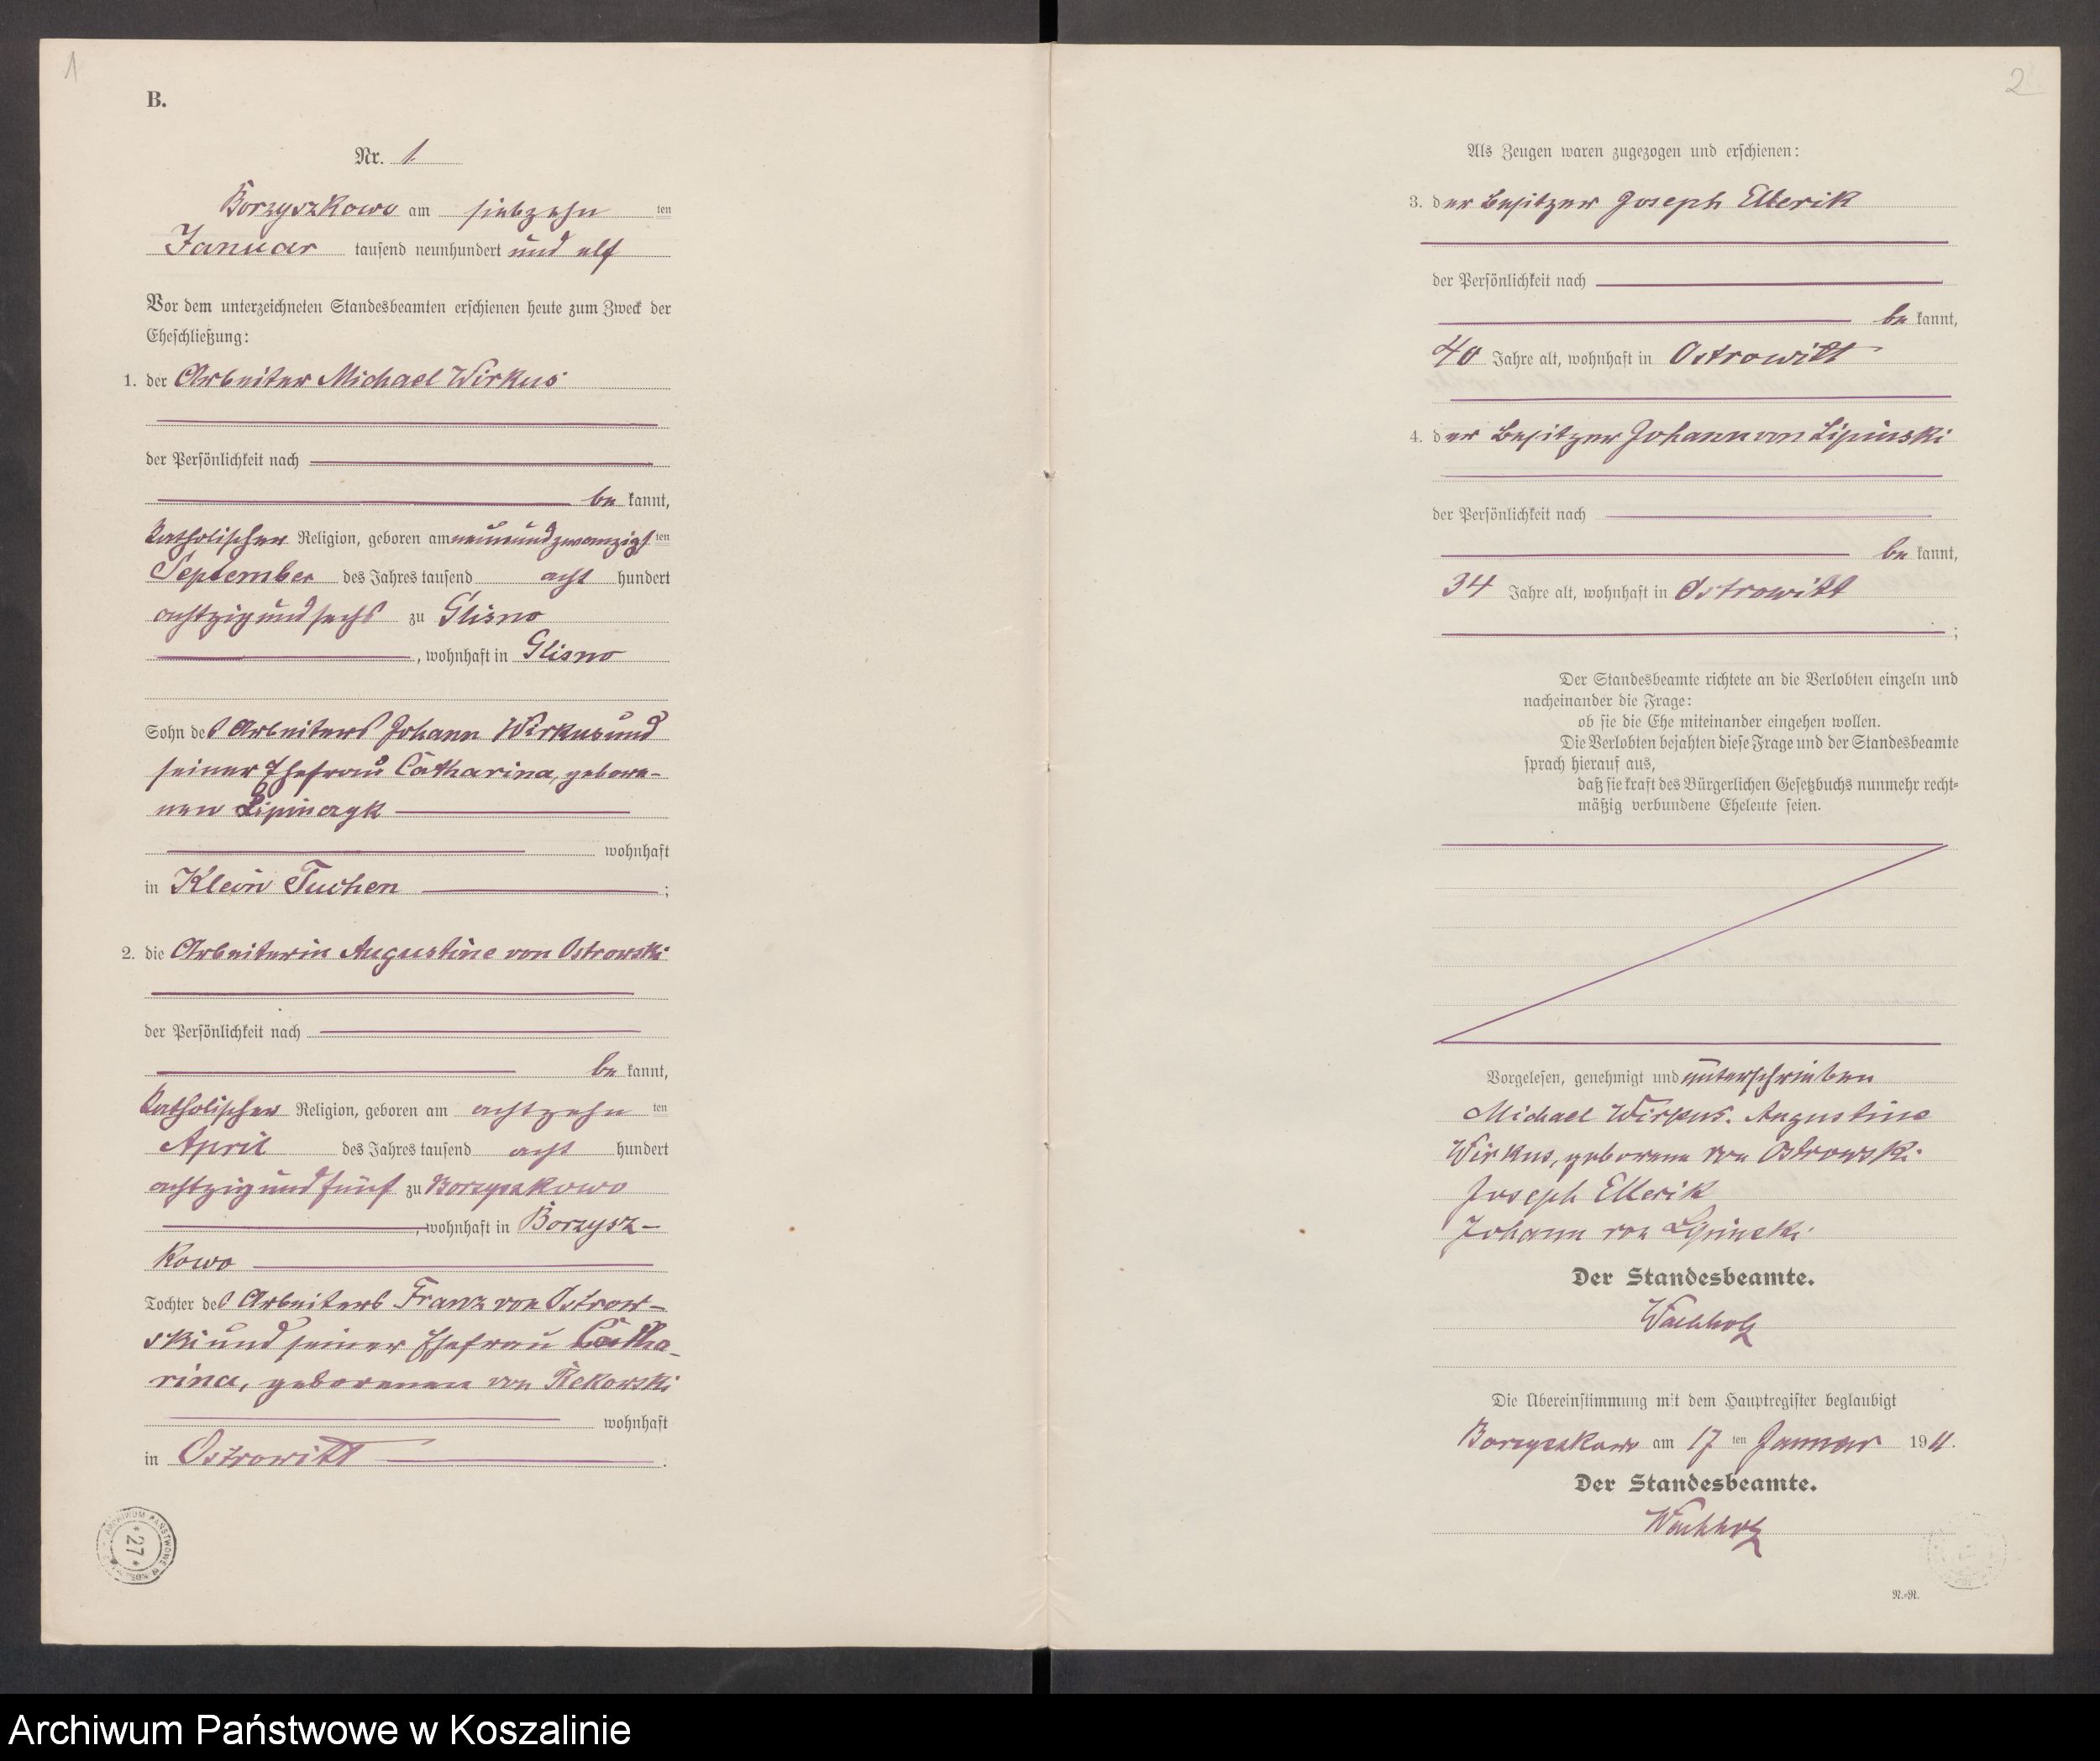 1
B.
Nr. 1.
Borzyszkowo am siebzehn ten
Januar tausend neunhundert und elf
Vor dem unterzeichneten Standesbeamten erschienen heute zum Zweck der
Eheschließung:
1. der Arbeiter Michael Wirkus
der Persönlichkeit nach
be kannt,
katholischer Religion, geboren am neunundzwanzigs ten
September des Jahres tausend acht hundert
achtzig und sechs zu Glisno
, wohnhaft in Glisno
Sohn des Arbeiters Johann Wirkus und
seiner Ehefrau Catharina, gebore-
nen
wohnhaft
in Klein Tuchen ;
2. die Arbeiterin Augustine von Ostrowski
der Persönlichkeit nach
be kannt,
katholischer Religion, geboren am achtzehn ten
April des Jahres tausend acht hundert
achtzig und fünf zu Borzyszkowo
, wohnhaft in Borzysz-
kowo
Tochter des Arbeiters Franz von Ostrow-
ski und seiner Ehefrau Catha-
rina, geborenen von Rekowski
wohnhaft
in Ostrowitt .
ARCHIWUM PAŃSTWOWE
* 27 *
2
Als Zeugen waren zugezogen und erschienen:
3. der Besitzer Joseph Ellerik
der Persönlichkeit nach
be kannt,
40 Jahre alt, wohnhaft in Ostrowitt
4. der Besitzer Johann von Lipinski
der Persönlichkeit nach
be kannt,
34 Jahre alt, wohnhaft in Ostrowitt
;
Der Standesbeamte richtete an die Verlobten einzeln und
nacheinander die Frage:
ob sie die Ehe miteinander eingehen wollen.
Die Verlobten bejahten diese Frage und der Standesbeamte
sprach hierauf aus,
daß sie kraft des Bürgerlichen Gesetzbuchs nunmehr recht-
mäßig verbundene Eheleute seien.
Vorgelesen, genehmigt und unterschrieben
Michael Wirkus. Augustine
Wirkus, geborene von Ostrowski.
Joseph Ellerik
Johann von Lipinski.
Der Standesbeamte.
Wachholz
Die Übereinstimmung mit dem Hauptregister beglaubigt
Borzyszkowo am 17 ten Januar 1911.
Der Standesbeamte.
Wachholz
N.=N.
Archiwum Państwowe w Koszalinie